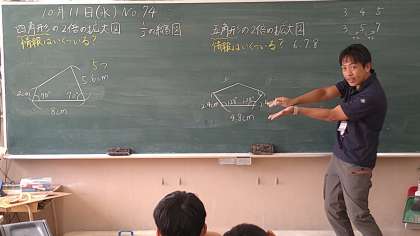 10月11日(水) No.74
四角形の2倍の拡大図
1/2の縮図
情報はいくついる?
5つ
2cm
5
6cm
90°
70°
8cm
五角形の2倍の拡大図
情報はいくついる? 6.7.8
2.4cm
128°
128°
4.8cm
3 4 5
3 5 7
+2 +2